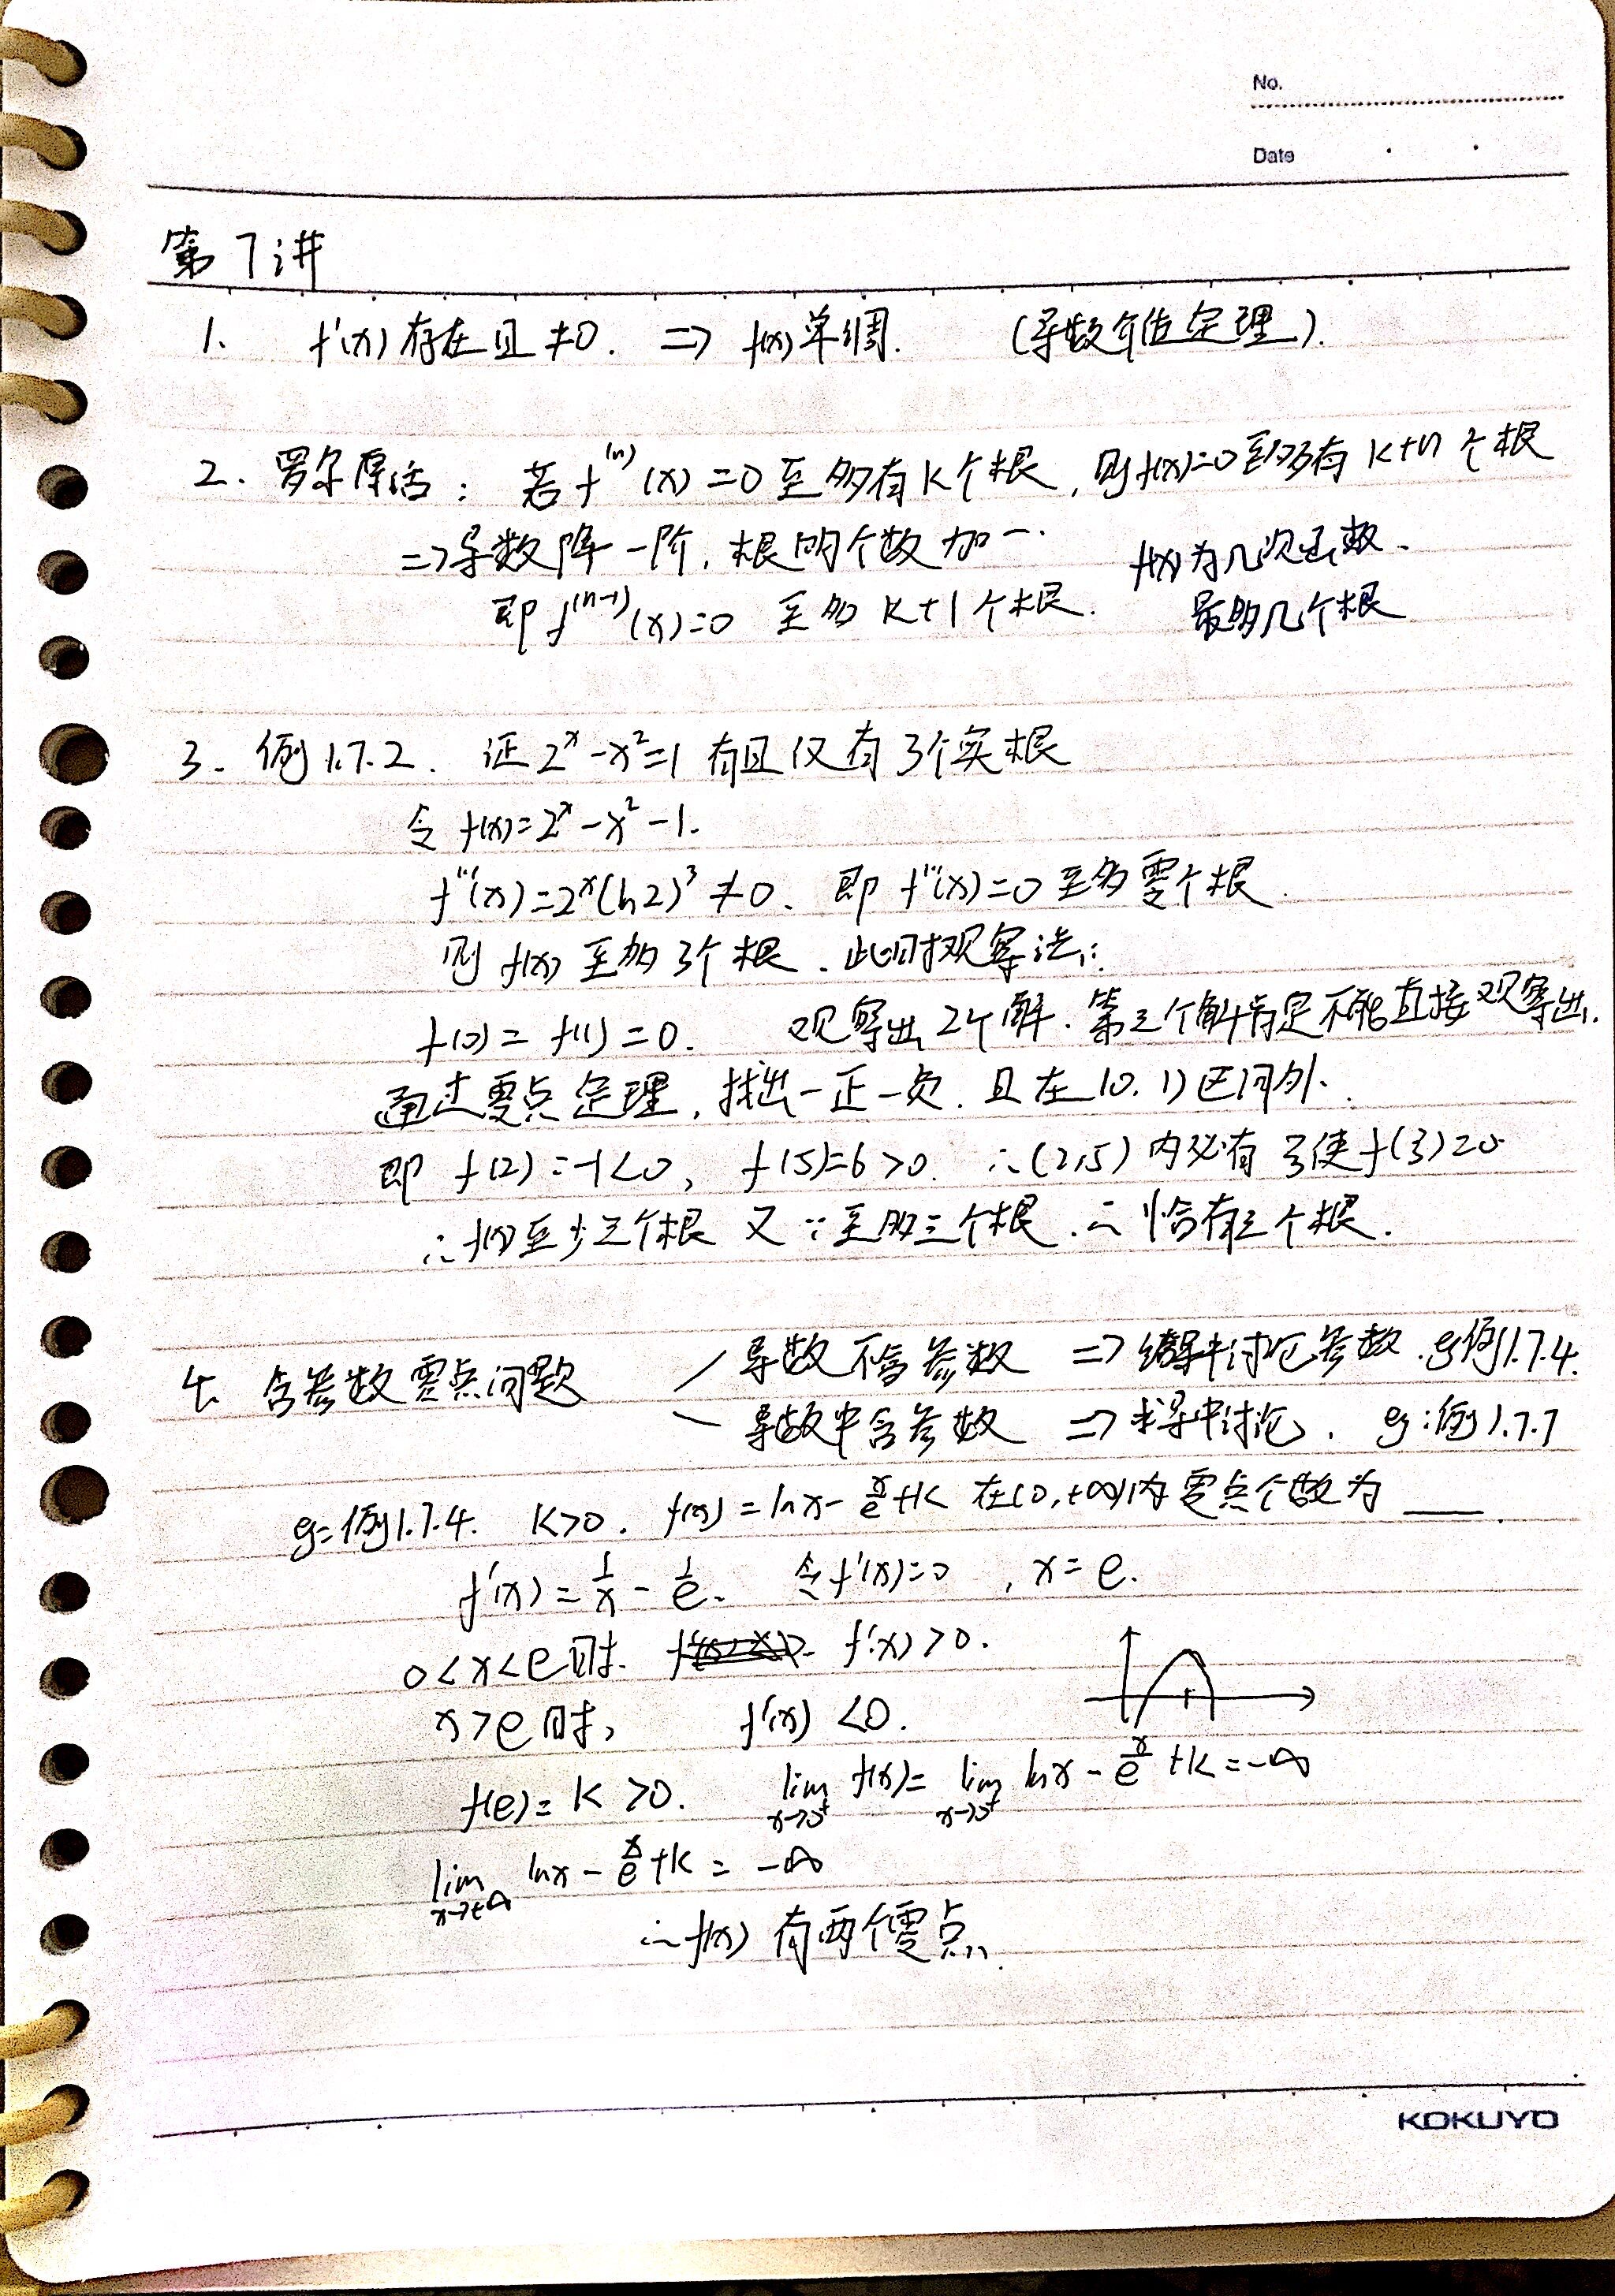 No.
Date
第7讲
1. f'(x)存在且≠0. => f(x)单调. (导数介值定理).
2. 罗尔原话: 若f⁽ⁿ⁾(x)=0至多有k个根, 则f(x)=0至多有k+n个根
=>导数降一阶, 根的个数加一.
f(x)为几次函数.
即f⁽ⁿ⁻¹⁾(x)=0 至多k+1个根.
最多几个根
3. 例1.7.2. 证 2ˣ-x²=1 有且仅有3个实根
令f(x)=2ˣ-x²-1.
f'''(x)=2ˣ(ln2)³≠0. 即f'''(x)=0至多零个根.
则f(x)至多3个根. 此时观察法:
f(0)=f(1)=0. 观察出2个解. 第三个解肯定不能直接观察出.
通过零点定理, 找出一正一负. 且在(0,1)区间外.
即 f(2)=-1<0, f(5)=6>0. ∴(2,5)内必有ξ使f(ξ)=0
∴f(x)至少三个根 又∵至多三个根. ∴恰有三个根.
4. 含参数零点问题
导数不含参数 => 结果中讨论参数. eg例1.7.4.
导数中含参数 => 求导中讨论. eg:例1.7.7
eg:例1.7.4. k>0. f(x)=lnx-x/e+k 在(0,+∞)内零点个数为___.
f'(x)=1/x-1/e. 令f'(x)=0, x=e.
0<x<e时. f'(x)>0.
x>e时, f'(x)<0.
f(e)=k>0. lim x→0⁺ f(x)=lim x→0⁺ lnx-x/e+k=-∞
lim x→+∞ lnx-x/e+k=-∞
∴f(x)有两个零点.
KOKUYO